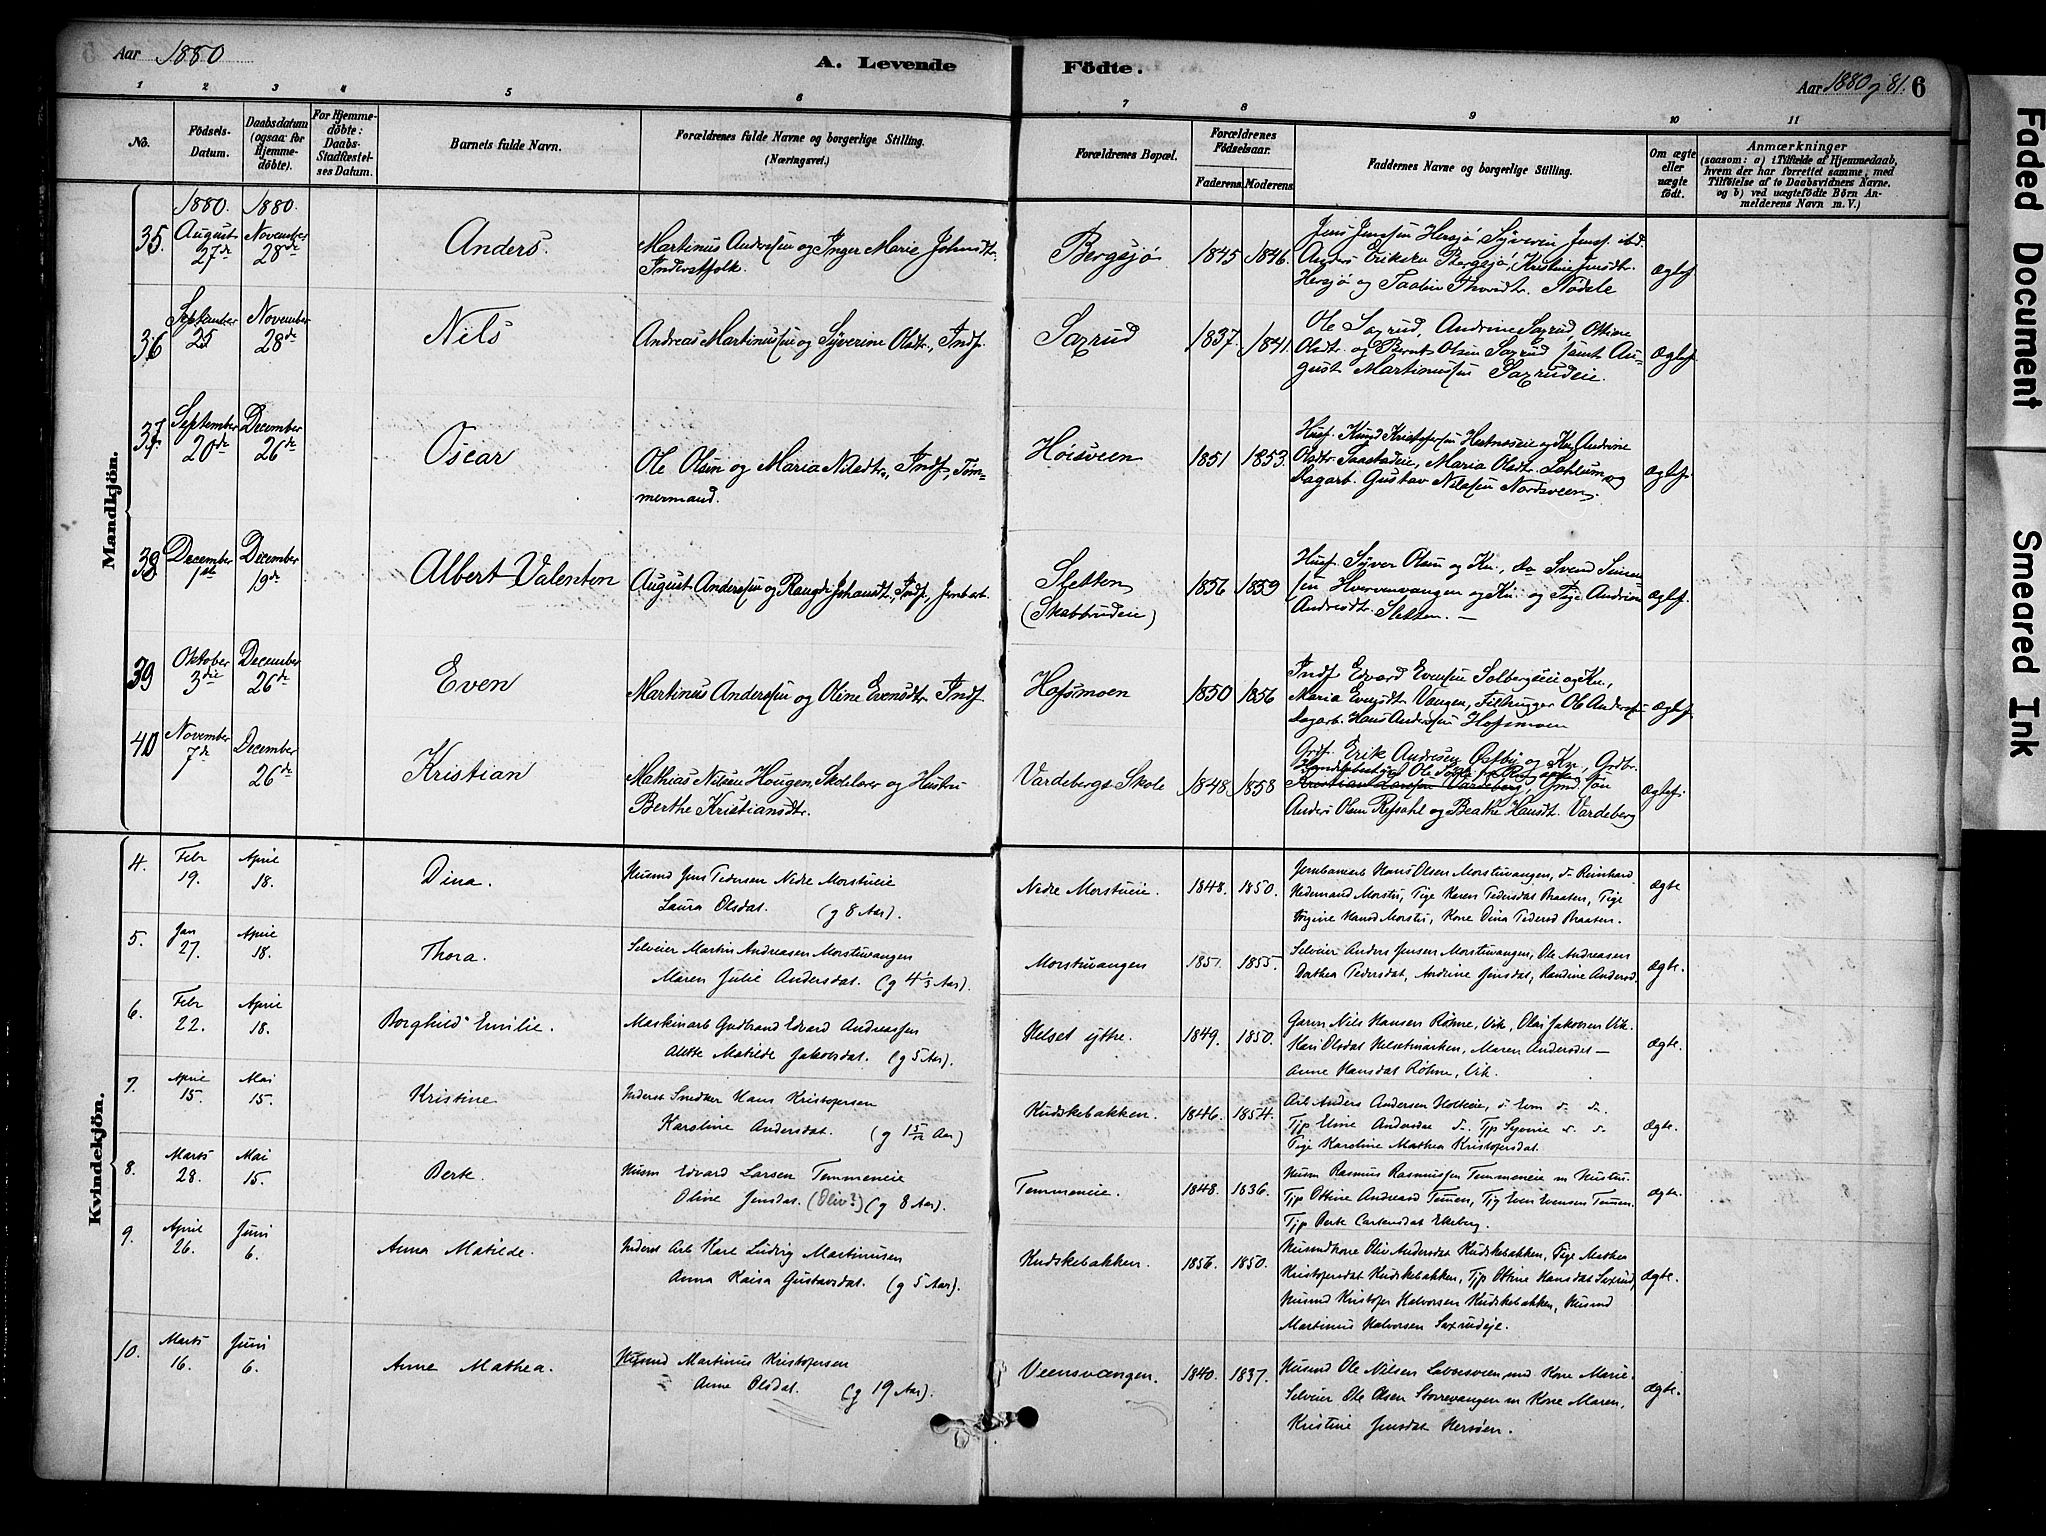 Aar 1880
A. Levende Födte.
Aar 1880 og 81. 6
1 2 3 4 5 6 7 8 9 10 11
No.
Födsels-Datum.
Daabsdatum (ogsaa for Hjemmedöbte).
For Hjemmedöbte: Daabs-Stadfæstelses Datum.
Barnets fulde Navn.
Forældrenes fulde Navne og borgerlige Stilling.
(Næringsvei.)
Forældrenes Bopæl.
Forældrenes Födselsaar.
Faderens. Moderens.
Faddernes Navne og borgerlige Stilling.
Om ægte eller uægte födt.
Anmærkninger
(saasom: a) i Tilfælde af Hjemmedaab,
hvem der har forrettet samme, med
Tilföielse af to Daabsvidners Navne.
og b) ved uægtefödte Börn Anmelderens Navn m. V.)
Mandkjön.
1880. 1880.
35. August 27de November 28de
Anders.
Martinus Andersen og Inger Marie Johnsdtr.
Inderstfolk.
Bergsjø 1845 1846.
Jens Jensen Hersjø, Syverin Jensf. ibd.
Anders Eriksen Bergsjø, Kristine Jensdtr.
Hersjø og Taabin Thorsdtr. Nødele
Ægtef
36 September 25 November 28de
Nils
Andreas Martinussen og Syverine Olsdtr., Indf.
Saxrud 1837. 1841.
Ole Saxrud, Andrine Saxrud, Oline
Olsdtr. og Bernt Olsen Saxrud samt Au-
gust Martinussen Saxrudeie.
Ægtef
37 September 20de December 26de
Oscar
Ole Olsen og Maria Nilsdtr., Indf., Tøm-
mermand.
Høisveen 1851 1853.
Husf. Knud Kristofersen Helmseie og Kn, Andrine
Olsdtr. Saastadeie, Maria Olsdtr. Løhlum og
Dagarb. Gustav Nilssen Nordsveen.
Ægtef.
38 December 1ste December 19de
Albert Valentin
August Andersen og Rangdi Johansdtr., Indf., Jernbarb.
Sletten
(Skabbrudeie)
1856 1859
Husf. Syver Olsen og Kn., do Svend Simen-
sen Hvervenvangen og Kn. og Pige Andrine
Andersdtr. Sletten. —
Ægtef.
39 Oktober 3die December 26de
Even
Martinus Anderssen og Oline Evensdtr. Indf
Hofsmoen 1850 1856
Indf Edvard Evensen Solbergseie og Kn.,
Maria Evensdtr. Vangen, Filhugger Ole Anderssen
Dagarb. Hans Anderssen Hofsmoen
Ægtef.
40 November 7de December 26de
Kristian
Mathias Nilsen Hougen, Skolelærer og Hustru
Berthe Kristiansdtr.
Vardebergs Skole 1848 1858
Grdf. Erik Andresen Østby og Kn., Grdbr.
Kristian Larssen Vardeberg, Gmd. søn
Anders Olsen Refsahl og Beathe Hansdt. Vardeberg
Ægtef.
Kvindekjön.
4. Febr 19. April 18.
Dina.
Husmd Jens Pedersen Nedre Morstueie
Laura Olsdat. (g 8 Aar).
Nedre Morstueie. 1848. 1850.
Jernbanearb Hans Olsen Morstuvangen, d. Reinhard
Hedemand Morstu, Pige Karen Pedersdat Braaten, Pige
Virgine Hansd Morstu, Kone Dina Pedersd Braaten.
Ægte
5. Jan 27. April 18.
Thora.
Selveier Martin Andreasen Morstuvangen
Maren Julie Andersdat. (g 4 1/3 Aar).
Morstuvangen 1851. 1855.
Selveier Anders Jensen Morstuvangen, Ole Andreasen
Dorthea Pedersdat, Andrine Jensdat, Randine Andersd.
Ægte.
6. Febr 22. April 18.
Borghild Emilie.
Maskinarb Gudbrand Edvard Andreassen
Alette Matilde Jakobsdat. (g 5 Aar).
Helset ytre. 1849. 1850.
Garm Nils Hansen Røhne, Vik, Olai Jakobsen Vik.
Kari Olsdat Helsetmarken, Maren Andersdat —
Anne Hansdat Røhne, Vik.
Ægte.
7. April 15. Mai 15.
Kristine
Inderst Snedker Hans Kristofersen
Karoline Andersdat. (g 1 5/12 Aar)
Kudskebakken. 1846. 1854.
Arb Anders Andersen Holteeie, d. Even d. d.
Tjp Eline Andersdat d., Tjp Syverine d. d.
Pige Karoline Mathea Kristofersdat.
Ægte.
8. Marts 28. Mai 15.
Berte.
Husm Edvard Larsen Temmeneie
Oline Jensdat. (Oliv?) (g 8 Aar).
Temmeneie. 1848. 1836.
Husm Rasmus Rasmussen Temmeneie m Hustru.
Tjp Ottine Andreasd Temmen, Tjg Even Evensen Temmen.
Tjp Berte Carlensdat Ekeberg.
Ægte.
9. April 26. Juni 6.
Anna Matilde.
Inderst Arb Karl Ludvig Martinusen
Anna Kaisa Gustavsdat. (g 5 Aar).
Kudskebakken. 1856. 1850.
Husmdkone Oliv Andersdat Kudskebakken, Pige Mathea
Kristofersdat Kudskebakken, Tjp Ottine Hansdat Saxrud,
Husmd Kristofer Halvorsen Kudskebakken, Husmd
Martinus Halvorsen Saxrudeje.
Ægte.
10. Marts 16. Juni 6.
Anne Mathea.
Husmd Martinus Kristofersen
Anne Olsdat. (g 19 Aar).
Veensvangen. 1840. 1837.
Husmd Ole Nilsen Løbersveen med Kone Marie.
Selveier Ole Olsen Storrevangen m Kone Maren,
Kristine Jensdat Hersøen.
Ægte.
Faded Document
Smeared Ink